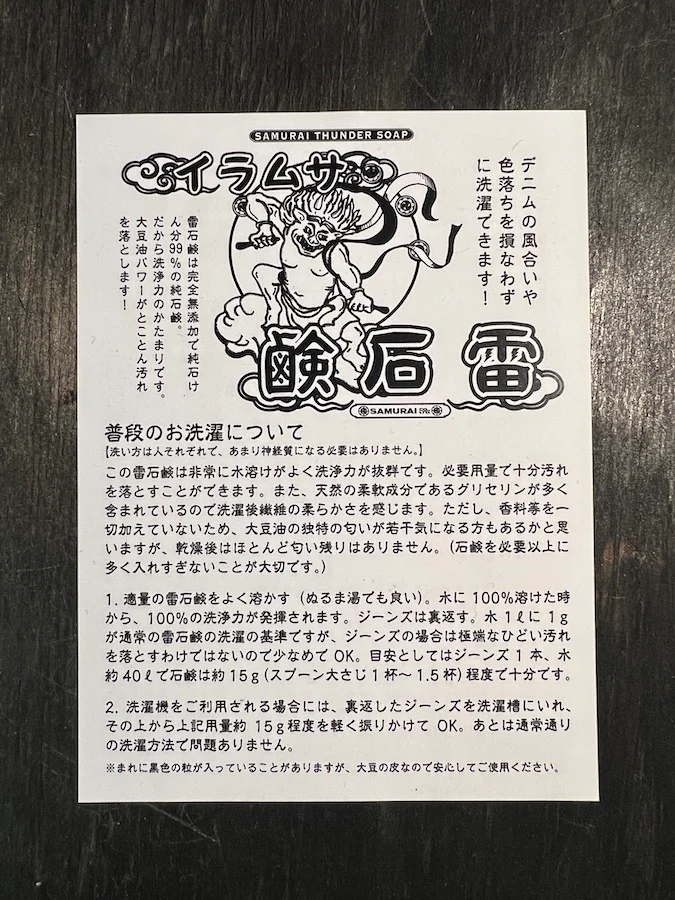 SAMURAI THUNDER SOAP
サムライ
デニムの風合いや
色落ちを損なわず
に洗濯できます！
雷石鹸は完全無添加で純石け
ん分99%の純石鹸。
だから洗浄力のかたまりです。
大豆油パワーがとことん汚れ
を落とします！
雷石鹸
SAMURAI
普段のお洗濯について
【洗い方は人それぞれで、あまり神経質になる必要はありません。】
この雷石鹸は非常に水溶けがよく洗浄力が抜群です。必要用量で十分汚れ
を落とすことができます。また、天然の柔軟成分であるグリセリンが多く
含まれているので洗濯後繊維の柔らかさを感じます。ただし、香料等を一
切加えていないため、大豆油の独特の匂いが若干気になる方もあるかと思
いますが、乾燥後はほとんど匂い残りはありません。(石鹸を必要以上に
多く入れすぎないことが大切です。)
1. 適量の雷石鹸をよく溶かす（ぬるま湯でも良い）。水に 100%溶けた時
から、100%の洗浄力が発揮されます。ジーンズは裏返す。水 1ℓに 1g
が通常の雷石鹸の洗濯の基準ですが、ジーンズの場合は極端なひどい汚れ
を落とすわけではないので少なめで OK。目安としてはジーンズ 1 本、水
約40ℓで石鹸は約15g(スプーン大さじ1杯〜1.5杯)程度で十分です。
2. 洗濯機をご利用される場合には、裏返したジーンズを洗濯槽にいれ、
その上から上記用量約 15g程度を軽く振りかけて OK。あとは通常通り
の洗濯方法で問題ありません。
※まれに黒色の粒が入っていることがありますが、大豆の皮なので安心してご使用ください。